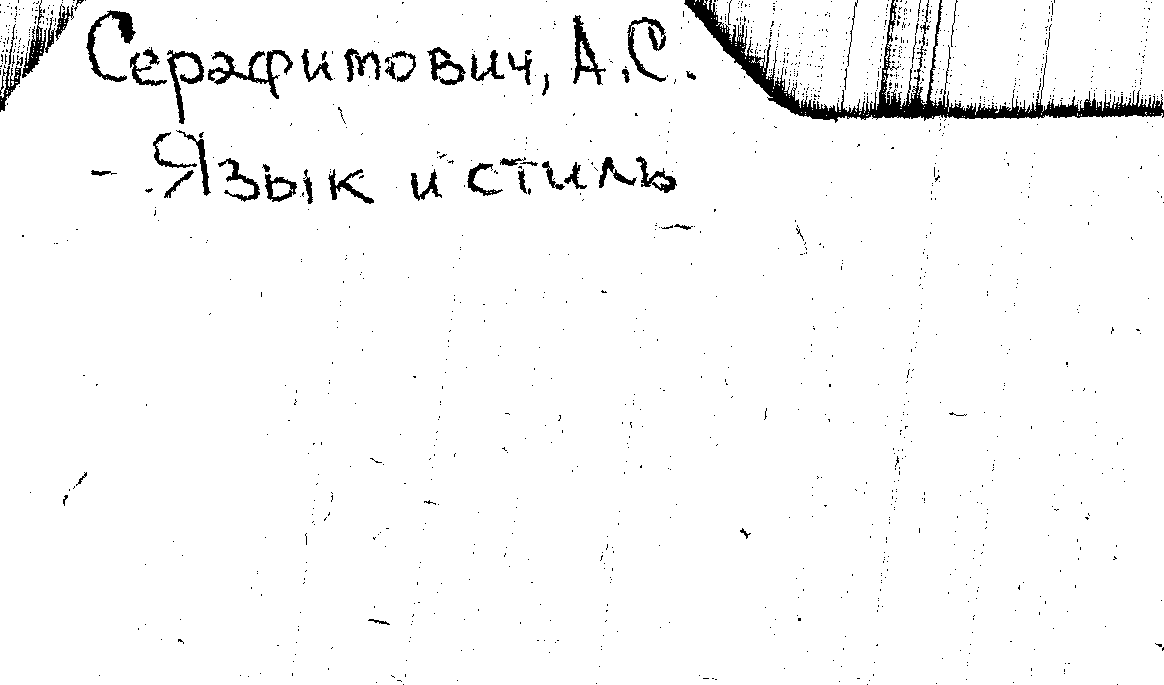 Серафимович, А.С.
- Язык и стиль